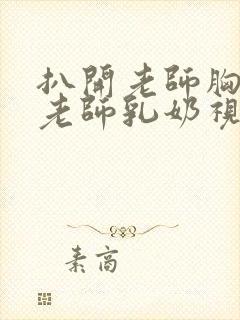 扒開老師胸
老師乳奶視
素高